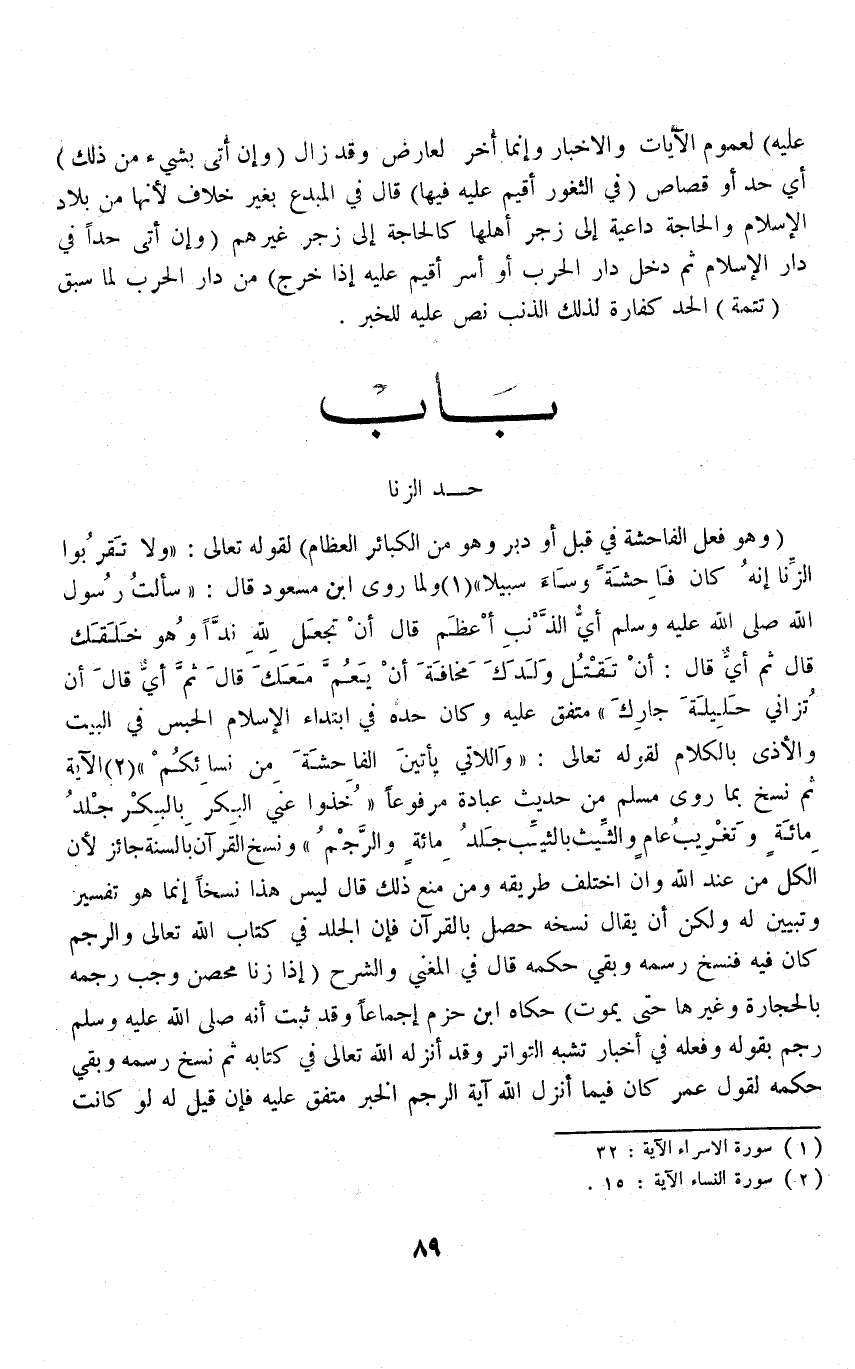 عليه) لعموم الآيات والاخبار وإنما أخر لعارض وقد زال ( وإن أتى بشيء من ذلك )
أي حد أو قصاص ( في الثغور أقيم عليه فيها) قال في المبدع بغير خلاف لأنها من بلاد
الإسلام والحاجة داعية إلى زجر أهلها كالحاجة إلى زجر غيرهم ( وإن أتى حداً في
دار الإسلام ثم دخل دار الحرب أو أسر أقيم عليه إذا خرج) من دار الحرب لما سبق
( تتمة ) الحد كفارة لذلك الذنب نص عليه للخبر .
بَابْ
حـد الزنا
( وهو فعل الفاحشة في قبل أو دبر وهو من الكبائر العظام) لقوله تعالى : «ولا تَقرَبُوا
الزِّنا إنهُ كان فَاحِشَةً وسَاءَ سبيلا»(١)ولما روى ابن مسعود قال : « سألتُ رسُول
الله صلى الله عليه وسلم أيُّ الذَّنْبِ أعْظَم قال أنْ تجعَل لِلّهِ ندَّاً وهُو خَلَقَك
قال ثم أيُّ قال : أنْ تَقْتُل وَلَدَكَ مَخافَةَ أنْ يَعُمَّ مَعَكَ قالَ ثمَّ أيُّ قالَ أن
تُزاني حَلِيلةَ جارِكَ » متفق عليه وكان حده في ابتداء الإسلام الحبس في البيت
والأذى بالكلام لقوله تعالى : « وَاللاتي يأتينَ الفاحِشَةَ مِن نسائِكُمْ »(٢)الآية
ثم نسخ بما روى مسلم من حديث عبادة مرفوعاً « خُذوا عني البكر بِالبكْر جلْدُ
مِائَةٍ وتَغْرِيبُ عامٍ والثَّيث بالثيِّب جَلدُ مِائةٍ والرَّجْمُ » ونسخ القرآن بالسنة جائز لأن
الكل من عند الله وان اختلف طريقه ومن منع ذلك قال ليس هذا نسخاً إنما هو تفسير
وتبيين له ولكن أن يقال نسخه حصل بالقرآن فإن الجلد في كتاب الله تعالى والرجم
كان فيه فنسخ رسمه وبقي حكمه قال في المغني والشرح ( إذا زنا محصن وجب رجمه
بالحجارة وغيرها حتى يموت) حكاه ابن حزم إجماعاً وقد ثبت أنه صلى الله عليه وسلم
رجم بقوله وفعله في أخبار تشبه التواتر وقد أنزله الله تعالى في كتابه ثم نسخ رسمه وبقي
حكمه لقول عمر كان فيما أنزل الله آية الرجم الخبر متفق عليه فإن قيل له لو كانت
(١) سورة الاسراء الآية : ٣٢
(٢) سورة النساء الآية : ١٥ .
٨٩